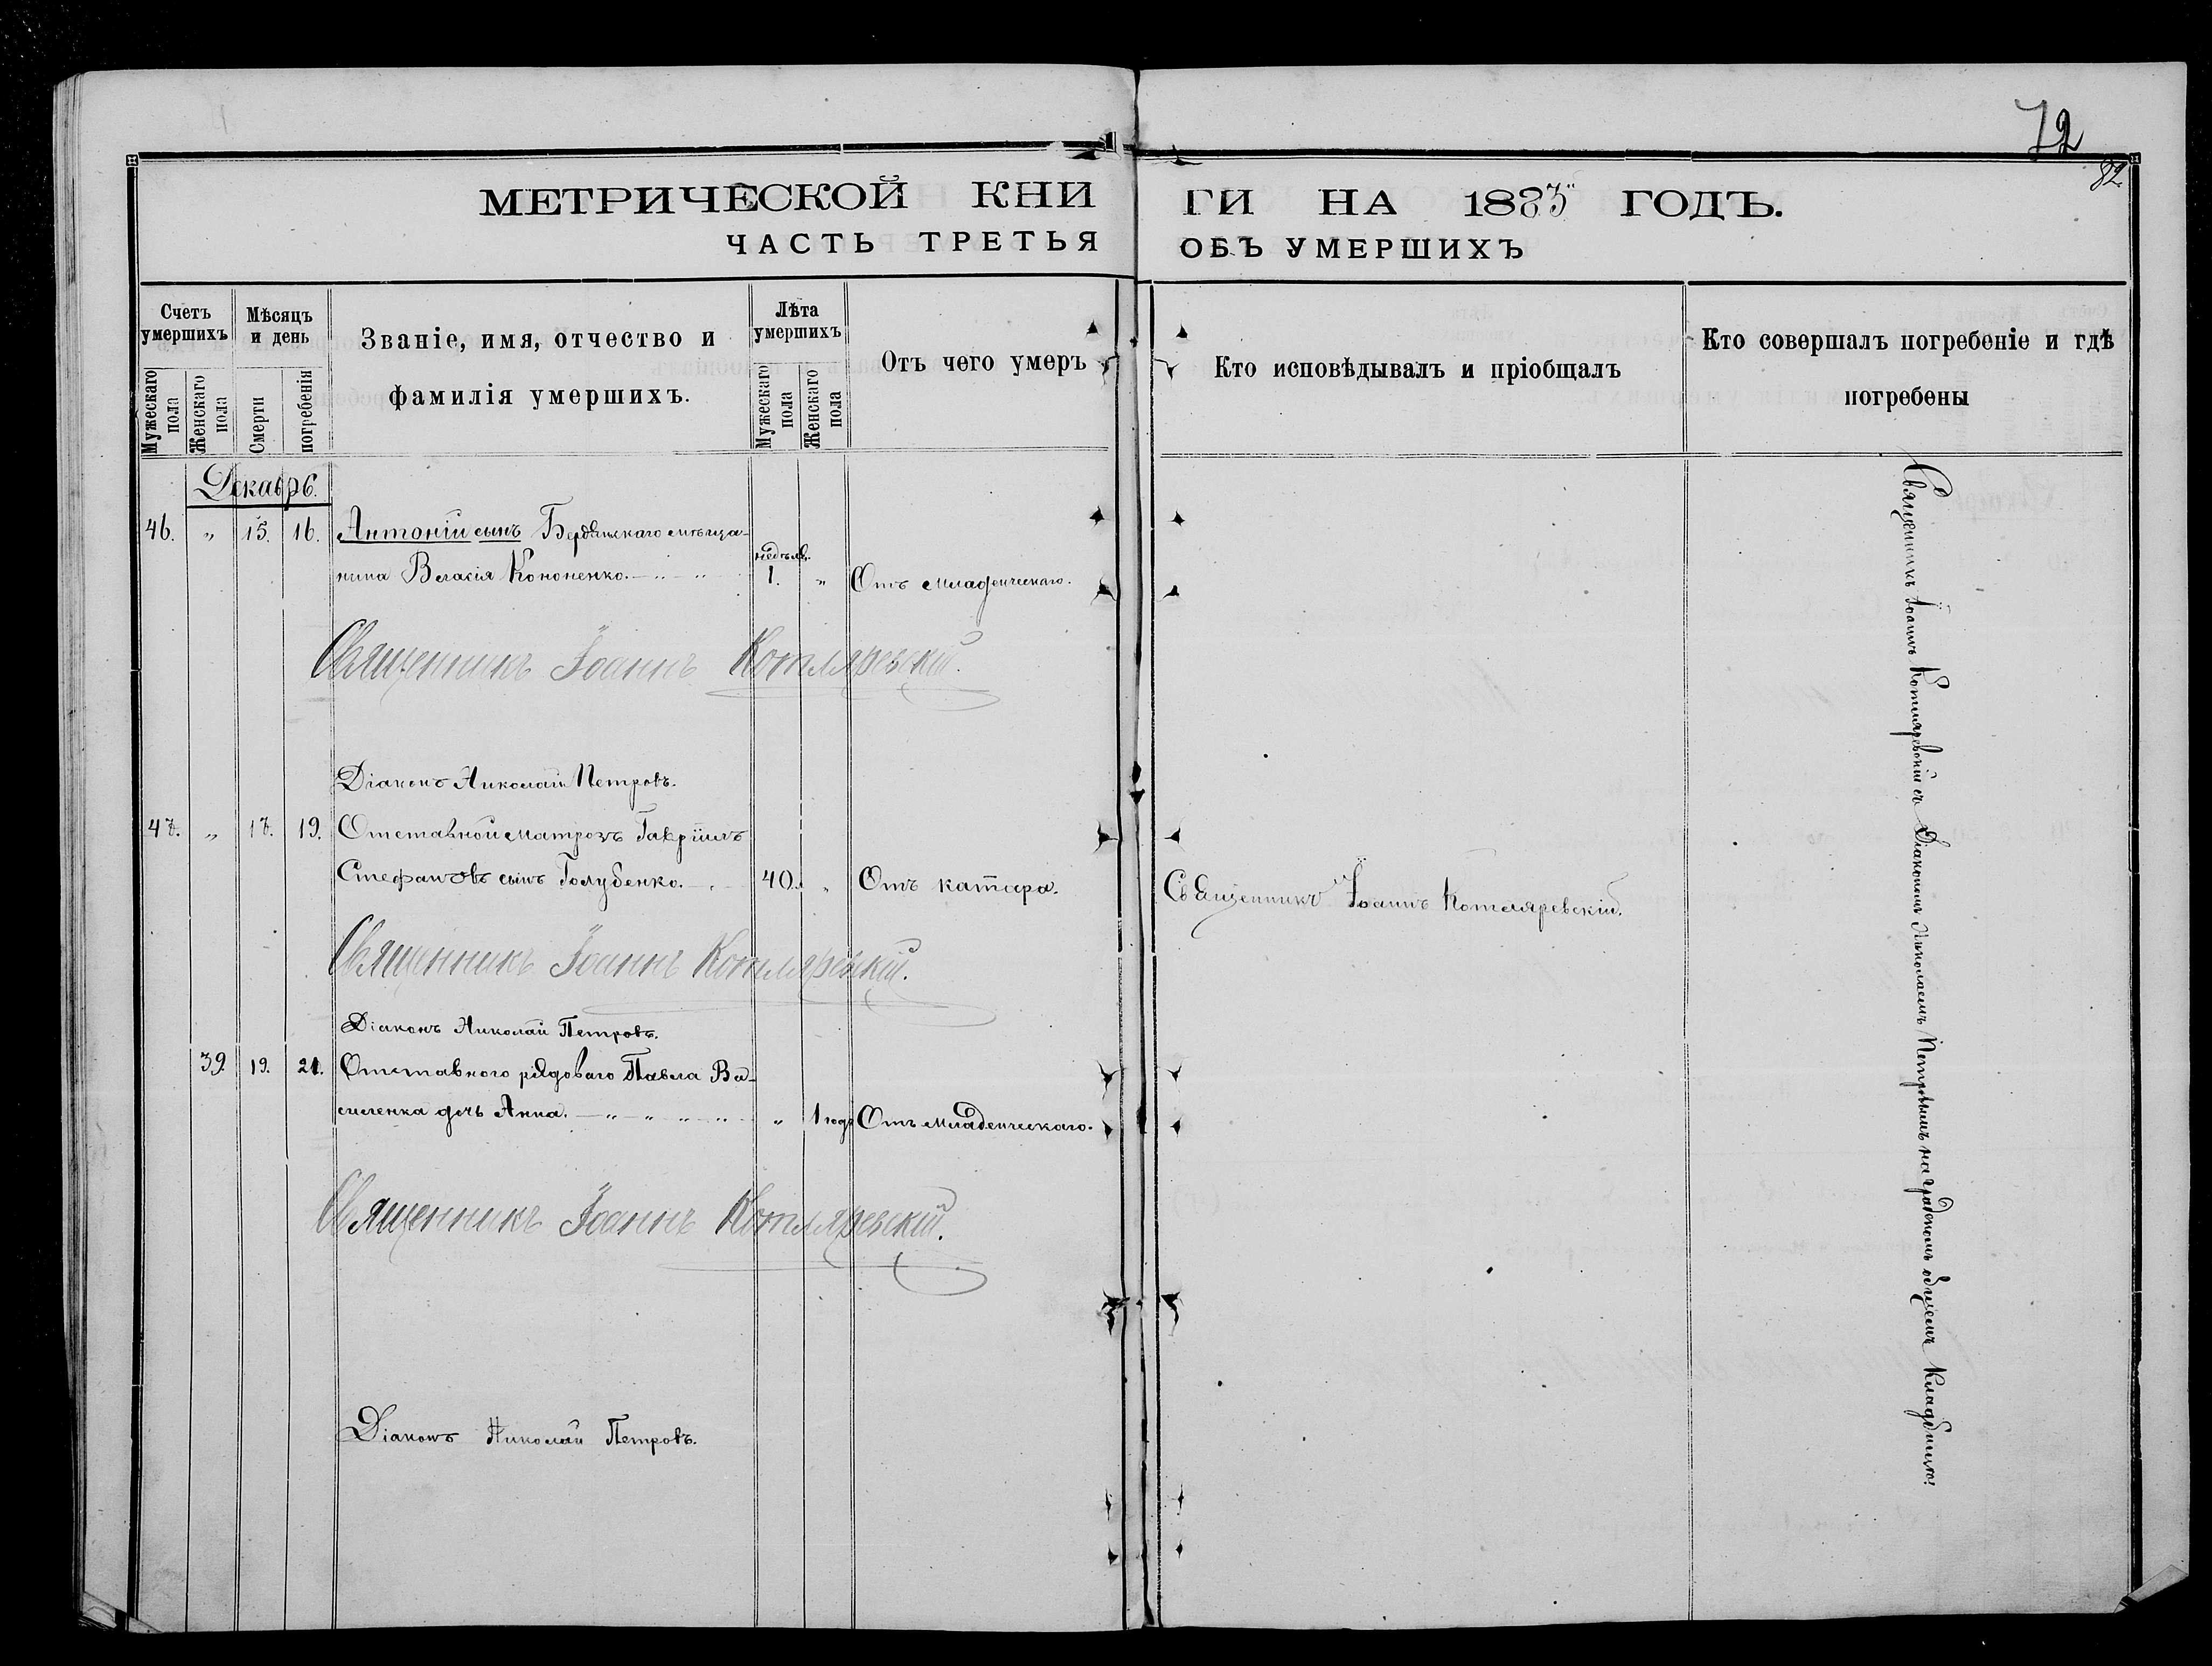 72
82.
МЕТРИЧЕСКОЙ КНИ ГИ НА 1883 ГОДЪ.
ЧАСТЬ ТРЕТЬЯ ОБЪ УМЕРШИХЪ
Счетъ умершихъ
Мужескаго пола
Женскаго пола
Мѣсяцъ и день
Смерти
погребенія
Званіе, имя, отчество и
фамилія умершихъ.
Лѣта умершихъ
Мужескаго пола
Женскаго пола
Отъ чего умеръ
Кто исповѣдывалъ и пріобщалъ
Кто совершалъ погребеніе и гдѣ
погребены
Декабрь.
46. " 15. 16. Антоній сынъ Бердянскаго мѣща-
нина Власія Кононенко. недѣль. 1. " Отъ младенческаго.
Священникъ Іоаннъ Котляревскій.
Діаконъ Николай Петровъ.
47. " 17. 19. Отставной матрозъ Гавріилъ
Стефановъ сынъ Голубенко. 40. " Отъ катара. Священникъ Іоаннъ Котляревскій.
Священникъ Іоаннъ Котляревскій.
Діаконъ Николай Петровъ.
39. 19. 21. Отставного рядоваго Павла Ва-
силенка дочь Анна. " 1 годъ Отъ младенческаго.
Священникъ Іоаннъ Котляревскій.
Діаконъ Николай Петровъ.
Священникъ Іоаннъ Котляревскій съ Діакономъ Николаемъ Петровымъ на градскомъ общемъ кладбищѣ.